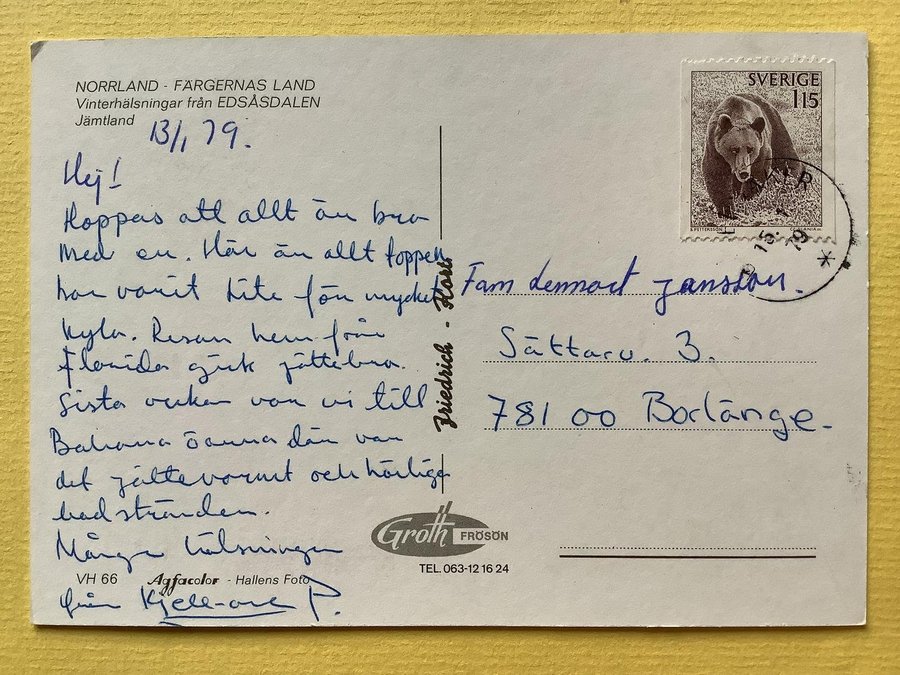 NORRLAND - FÄRGERNAS LAND
Vinterhälsningar från EDSÅSDALEN
Jämtland
13/1 79.
Hej!
Hoppas att allt är bra
med er. Här är allt toppen
har varit lite för mycket
kyla. Resan hem från
Florida gick jättebra.
Sista veckan var vi till
Bahama öarna där var
det jättevarmt och härliga
badstränder.
Många hälsningar
från Kjell-ove P.
VH 66 Agfacolor - Hallens Foto
Friedrich - Kort
Groth FRÖSÖN
TEL. 063-12 16 24
SVERIGE
115
15. 1
79
Fam Lennart Jansson.
Sättarv. 3.
781 00 Borlänge.